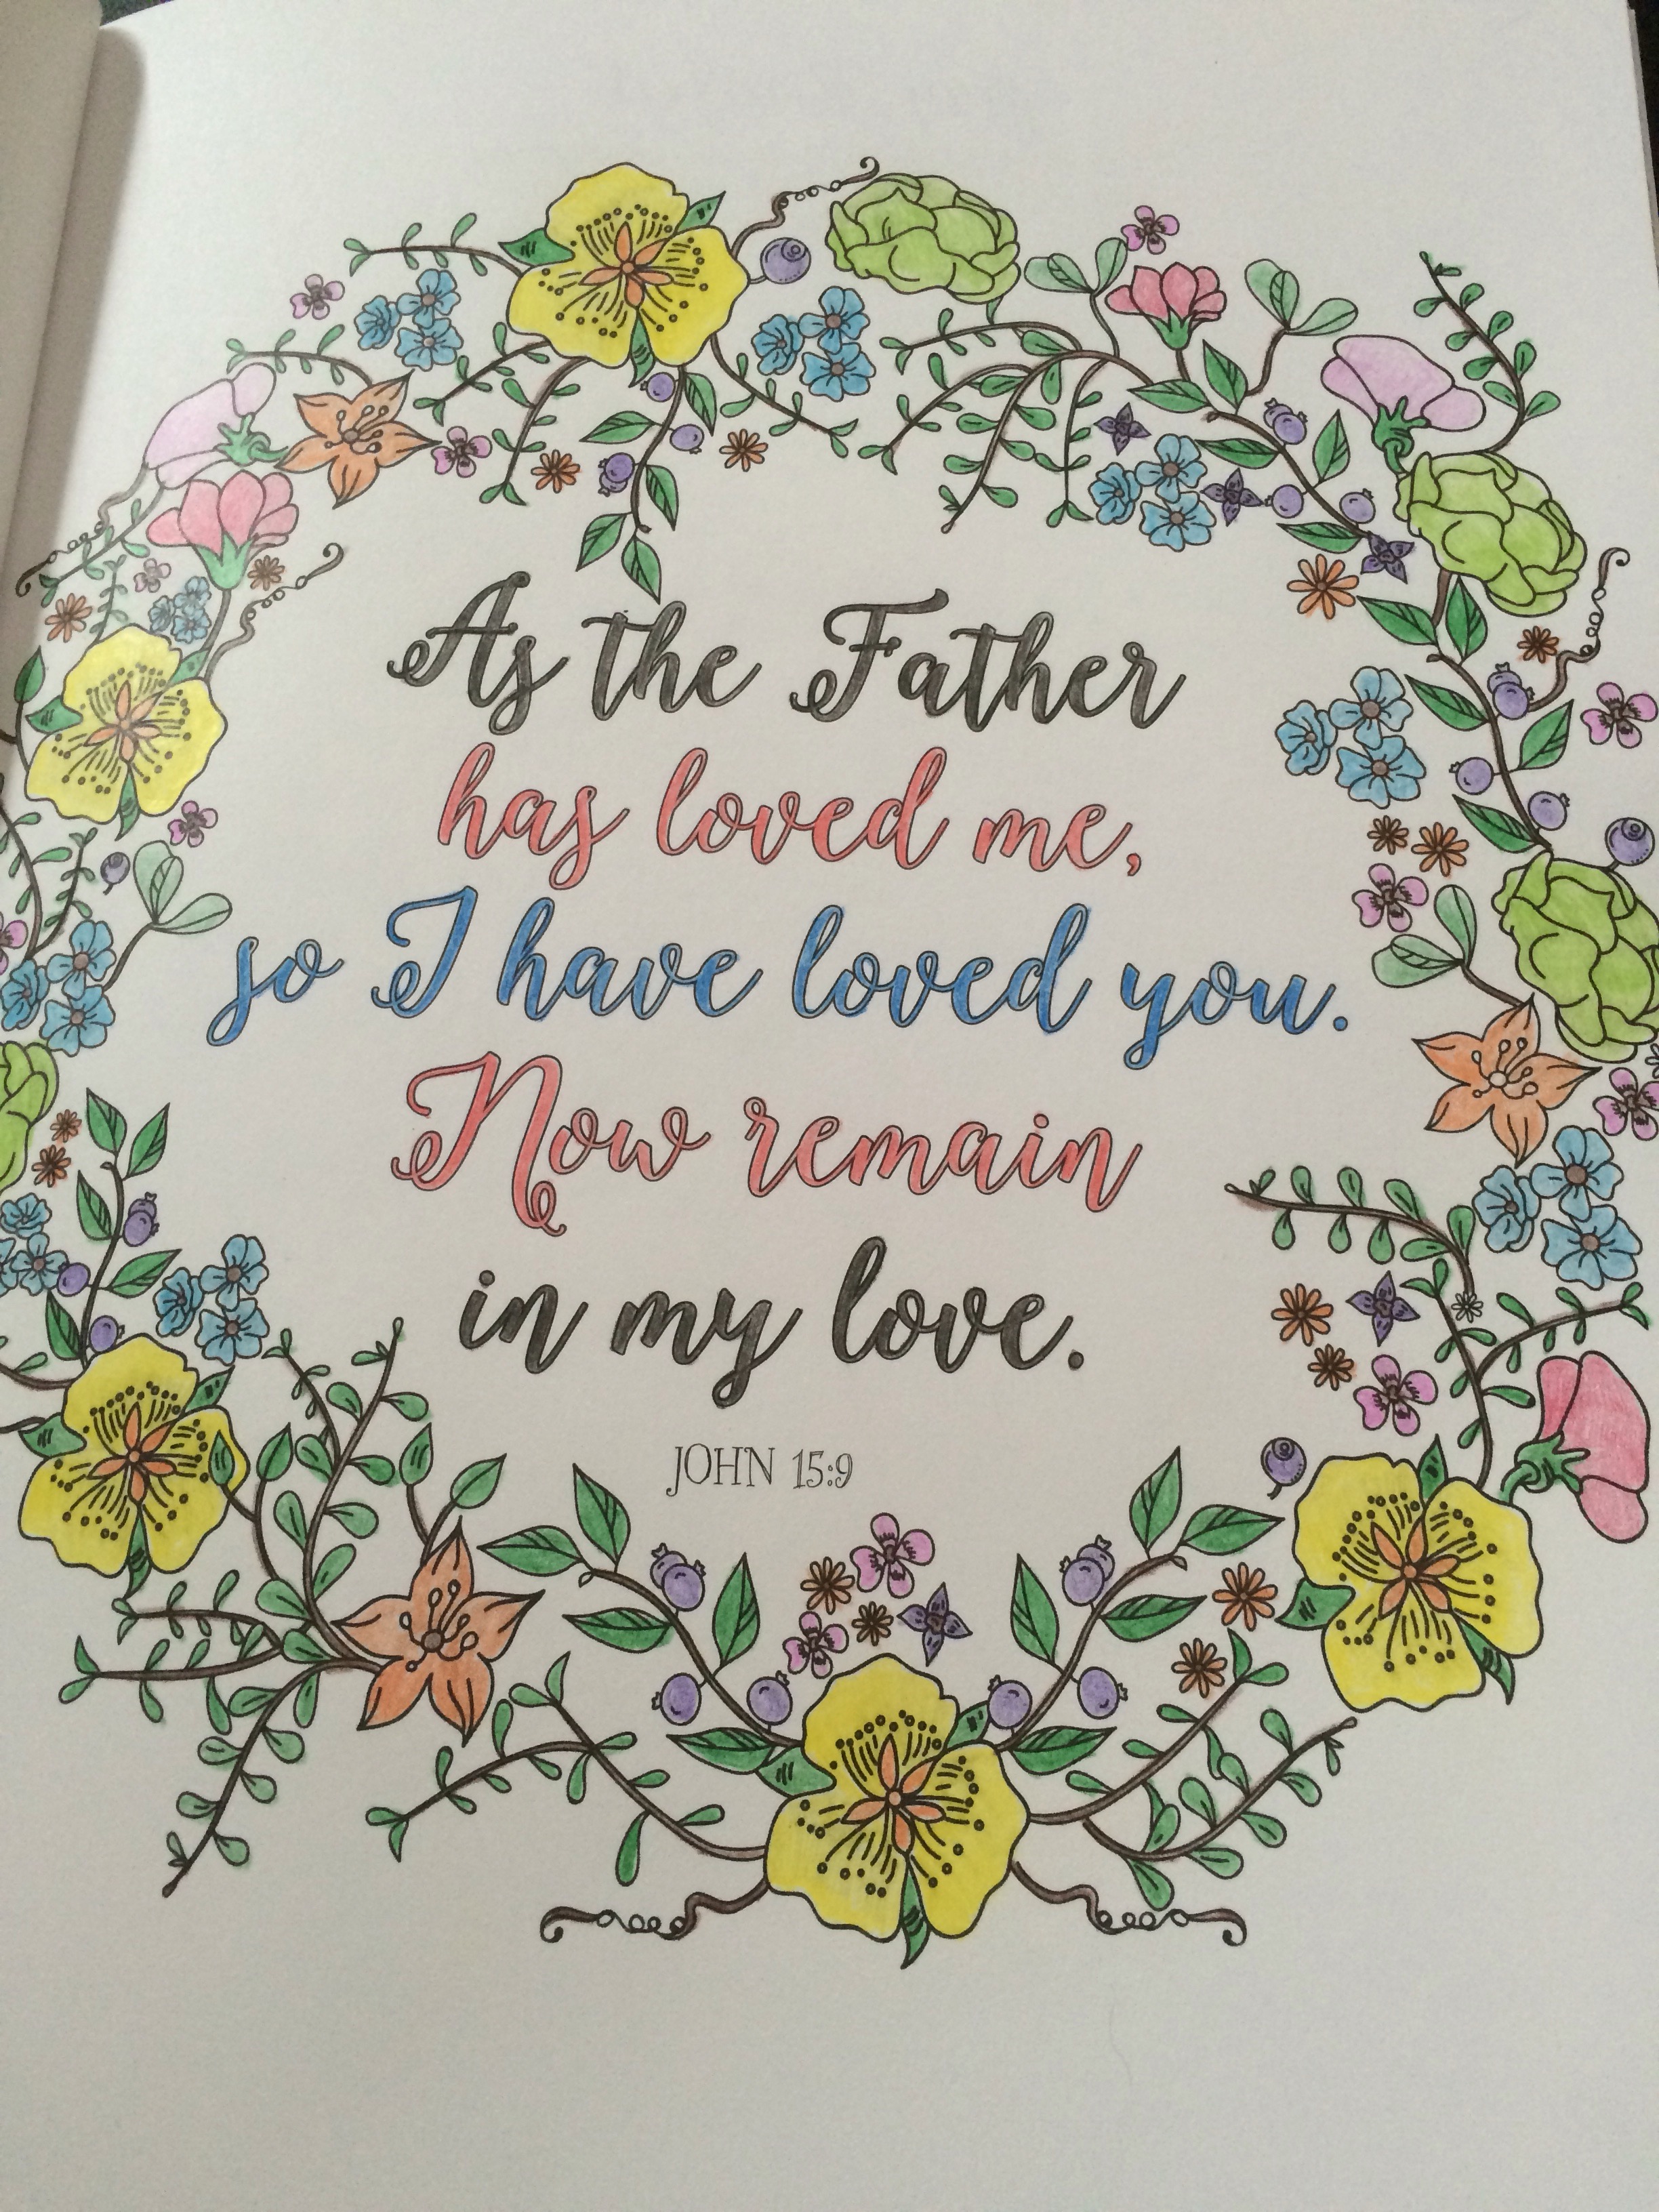 As the Father
has loved me,
so I have loved you.
Now remain
in my love.
JOHN 15:9